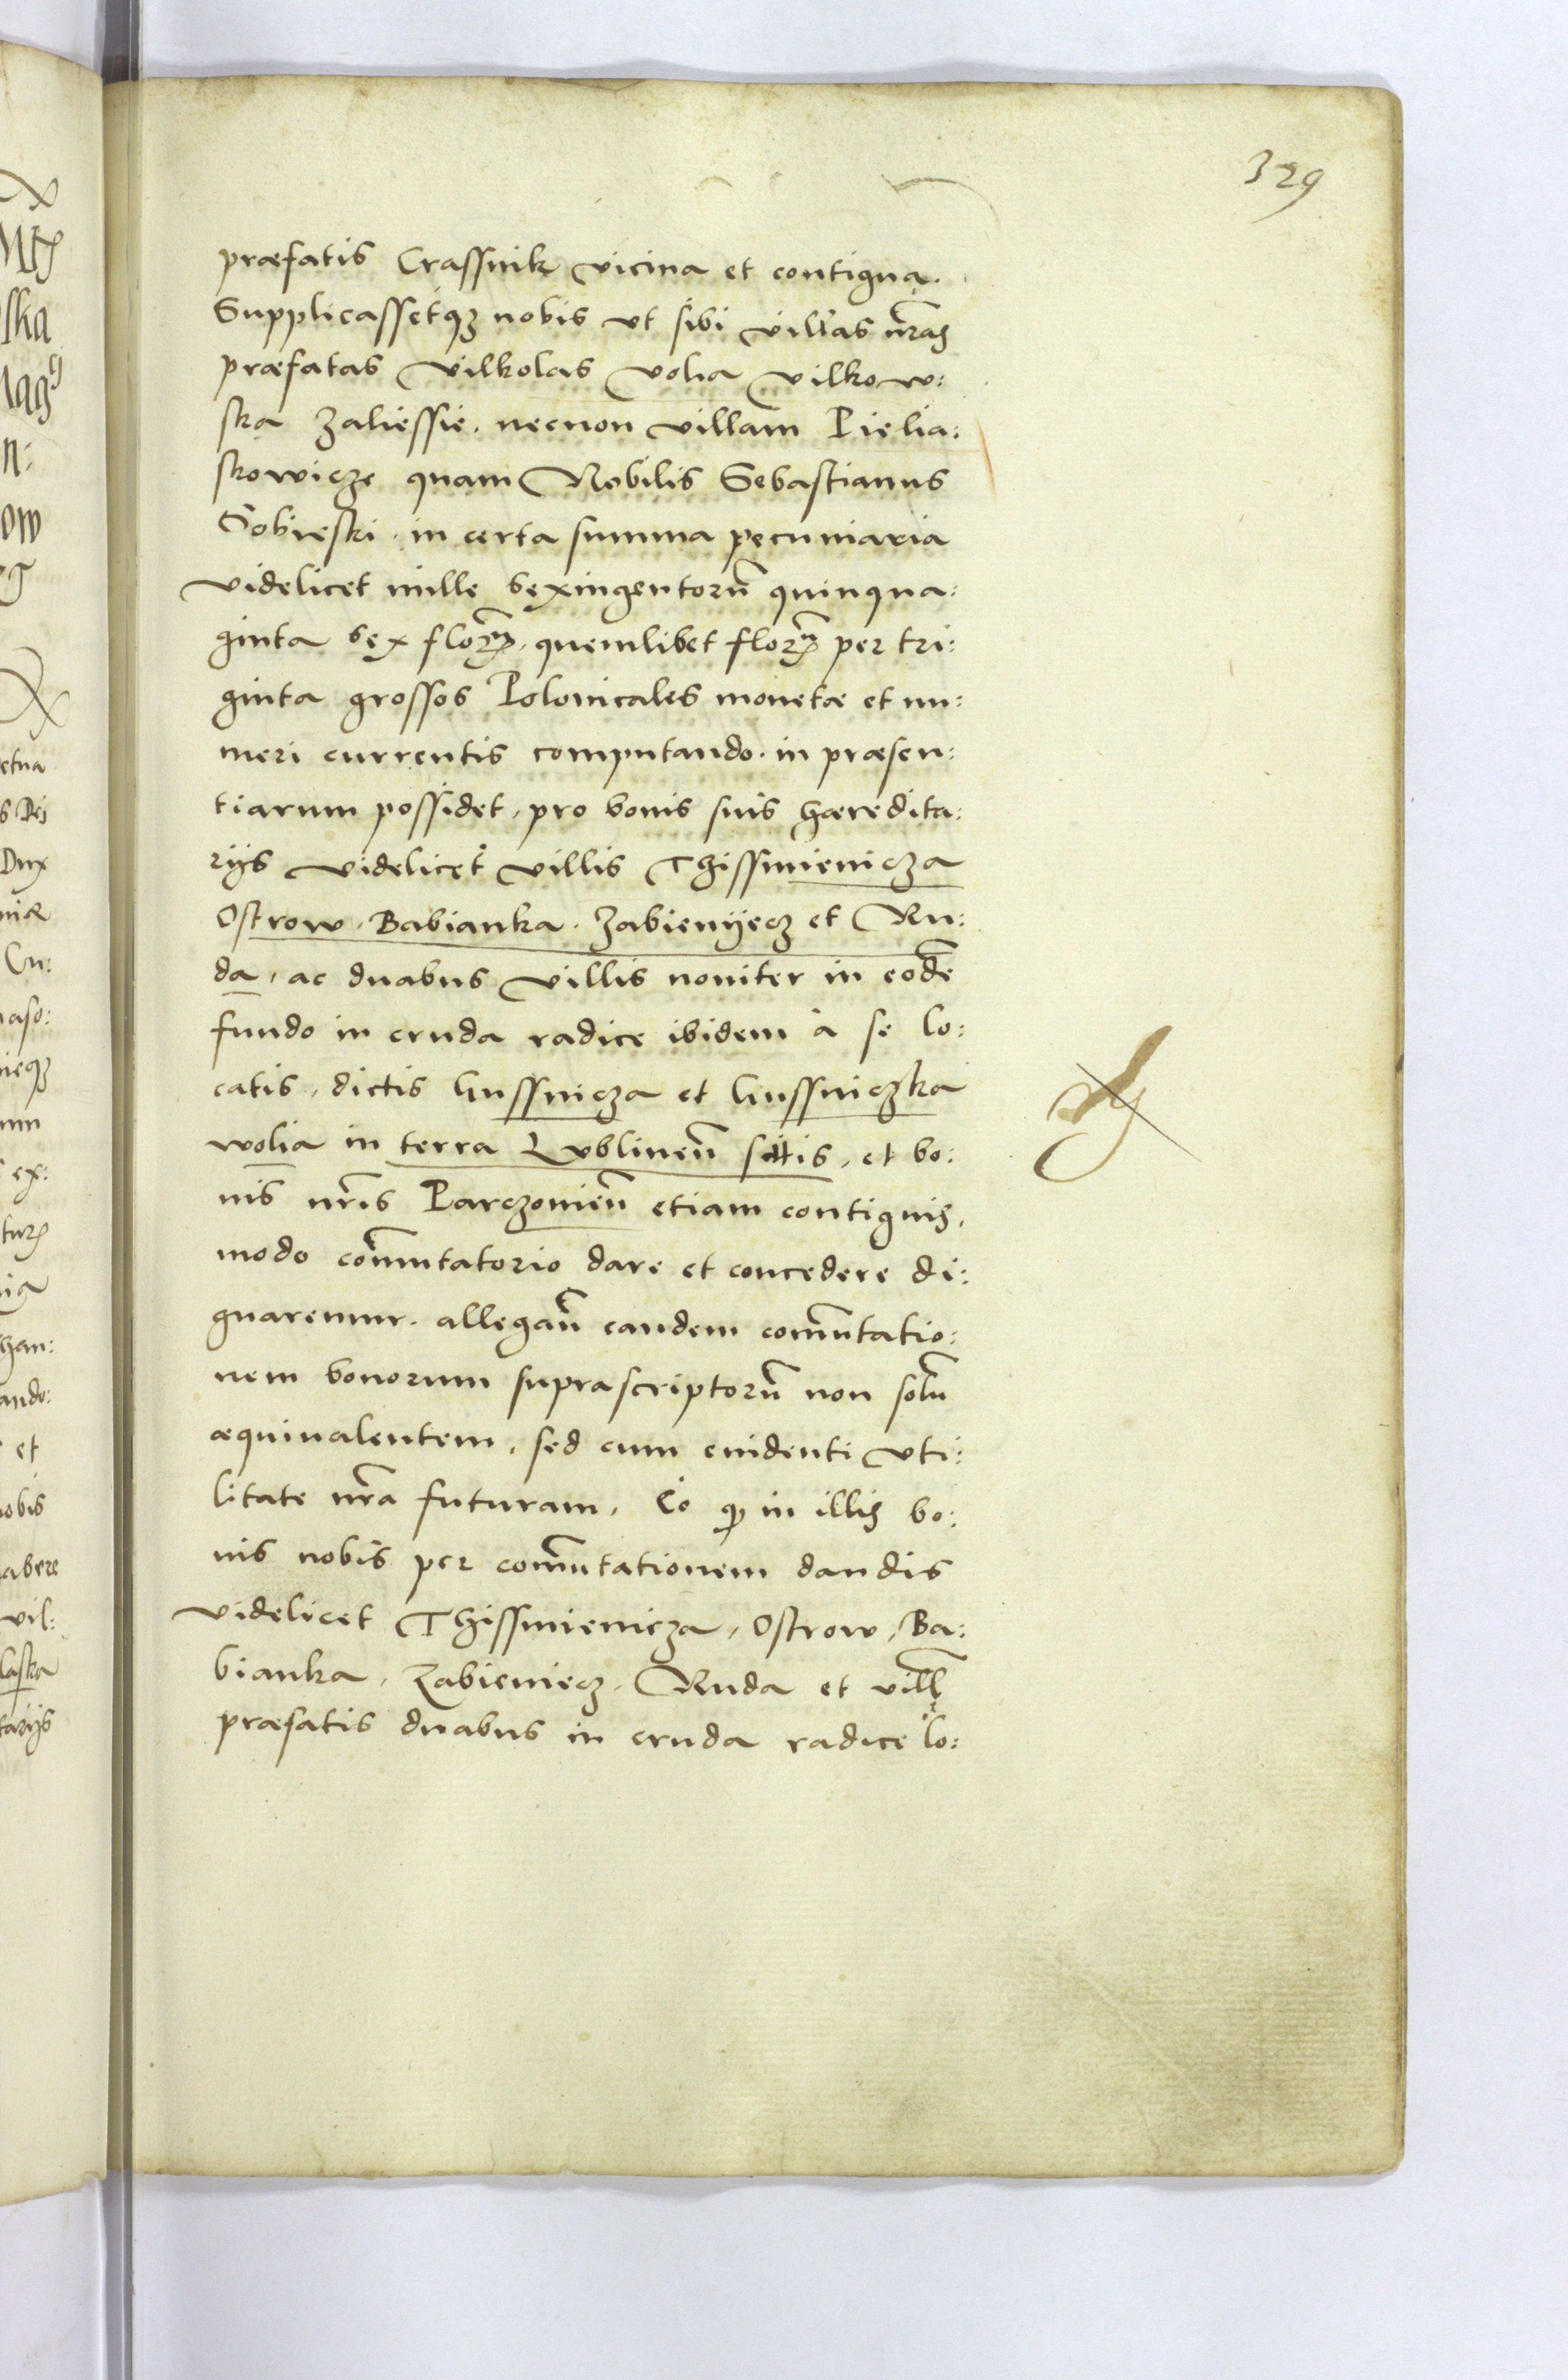 329
præfatis Crassnik vicina et contigua.
Supplicassetqz nobis vt sibi villas nr̃as
præfatas Vilkolas Volia Vilkow:
ska Zaliessie. necnon villam Pielia:
skowicze quam Nobilis Sebastianus
Sobieski. in certa summa pecuniaria
videlicet mille sexingentorũ quinqua:
ginta sex florẽn. quemlibet florẽn per tri:
ginta grossos Polonicales monetæ et nu:
meri currentis computando. in præsen:
tiarum possidet, pro bonis suis hæredita:
rijs videlicet villis Thissmienicza
Ostrow. Babianka. Zabienijecz et Ru:
da, ac duabus villis noviter in eodẽ
fundo in cruda radice ibidem à se lo:
catis, dictis Gussnicza et Gussniczka
wolia in terra Lvblineñ sittis, et bo:
nis nr̃is Parczovieñ etiam contiguis,
modo com̃utatorio dare et concedere di:
gnaremur. allegañ eandem com̃utatio:
nem bonorum suprascriptorũ non solũ
æquivalentem, sed cum evidenti vti:
litate nr̃a futuram, Eo qp in illis bo:
nis nobis per com̃utationem dandis
videlicet Thissmienicza, Ostrow, Ba:
bianka, Zabieniecz. Ruda et vill̃
præfatis duabus in cruda radice lo: